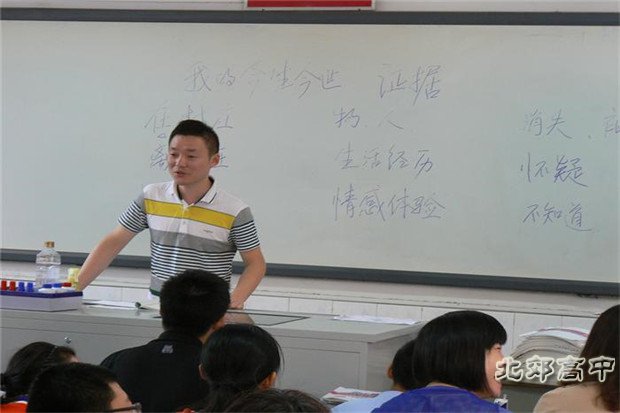 我的今生今世 证据
物、人 消失、
生活经历 怀疑
情感体验 不知道
北郊高中